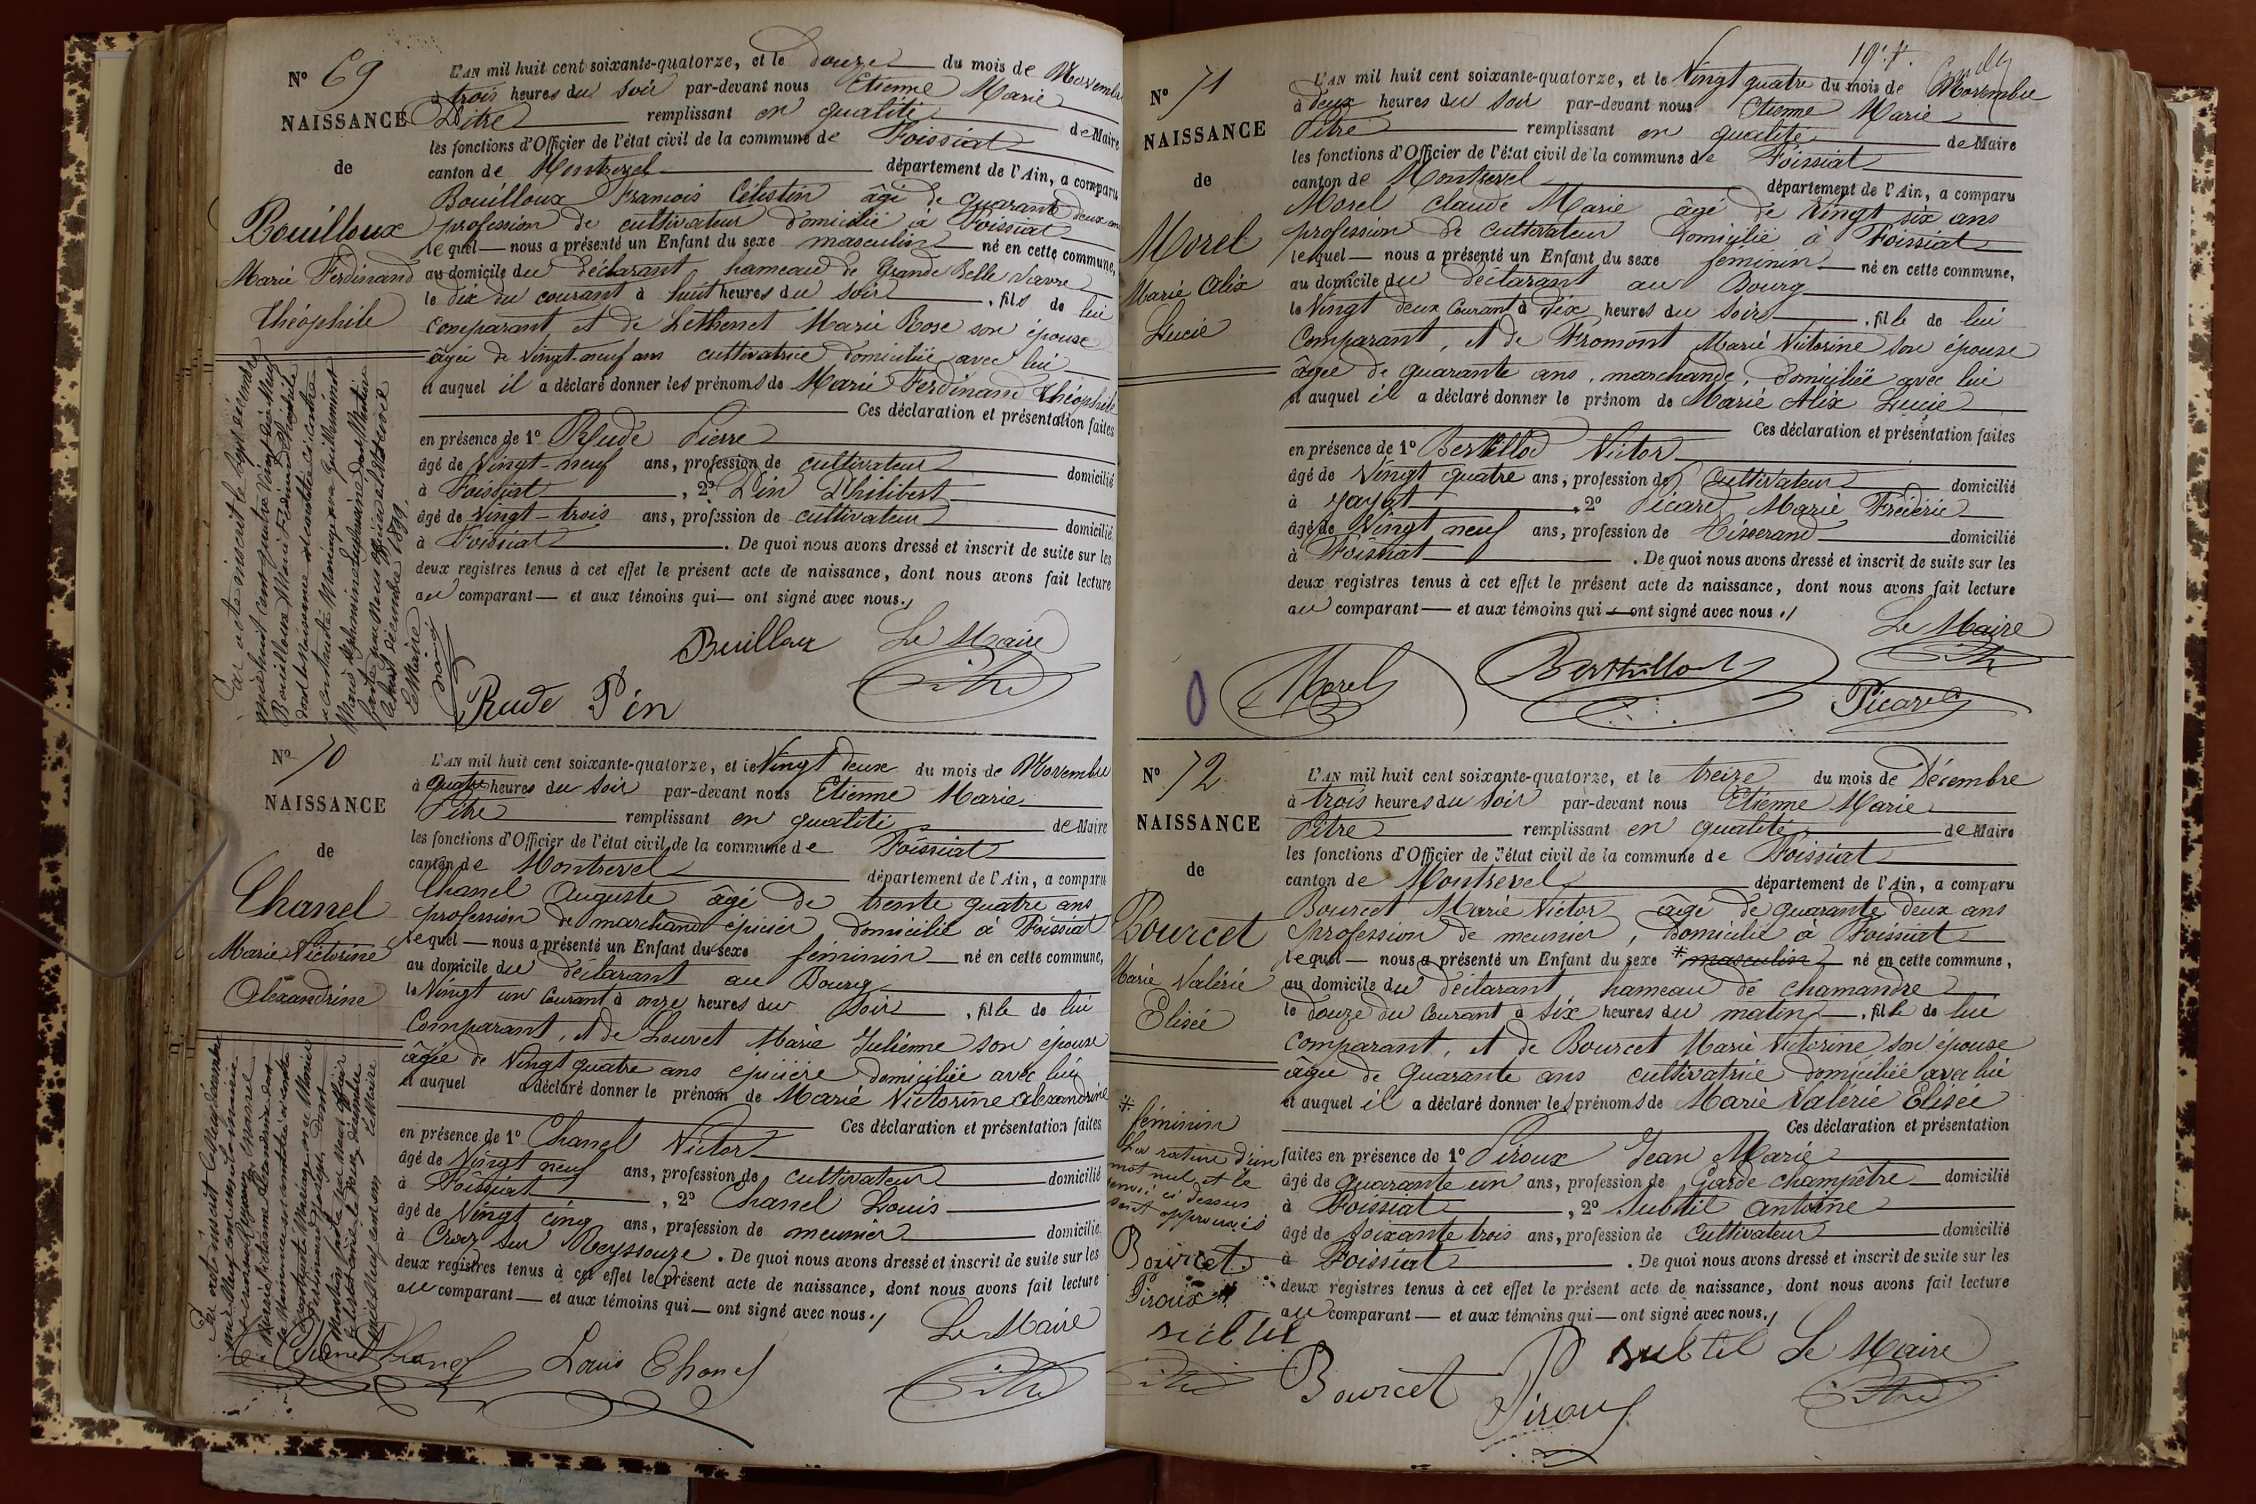 Nº 69
NAISSANCE
de
Bouilloux
Marie Ferdinand
Théophile
L'AN mil huit cent soixante-quatorze, et le douze du mois de Novembre
à trois heures du soir par-devant nous Etienne Marie
Pitre remplissant en qualité de Maire
les fonctions d'Officier de l'état civil de la commune de Foissiat
canton de Montrevel département de l'Ain, a comparu
Bouilloux François Célestin âgé de quarante deux ans
profession de cultivateur domicilié à Foissiat
lequel — nous a présenté un Enfant du sexe masculin né en cette commune,
au domicile du déclarant hameau de Grande Belle Vavre
le dix du courant à huit heures du soir, fils de lui
comparant, et de Lethenet Marie Rose son épouse
âgée de vingt-neuf ans cultivatrice domiciliée avec lui
et auquel il a déclaré donner les prénoms de Marie Ferdinand Théophile
Ces déclaration et présentation faites
en présence de 1º Rude Pierre
âgé de vingt-neuf ans, profession de cultivateur domicilié
à Foissiat, 2º Pin Philibert
âgé de vingt-trois ans, profession de cultivateur domicilié
à Foissiat. De quoi nous avons dressé et inscrit de suite sur les
deux registres tenus à cet effet le présent acte de naissance, dont nous avons fait lecture
au comparant — et aux témoins qui — ont signé avec nous./
Bouilloux Le Maire
Rude Pin Pitre
Par acte inscrit le sept décembre
mil huit cent quatre vingt dix neuf
Bouilloux Marie Ferdinand Théophile
dont la naissance est constatée ci-contre
a contracté Mariage avec
décembre 1899
Le Maire
Nº 70
NAISSANCE
de
Chanel
Marie Victorine
Alexandrine
L'AN mil huit cent soixante-quatorze, et le Vingt deux du mois de Novembre
à quatre heures du soir par-devant nous Etienne Marie
Pitre remplissant en qualité de Maire
les fonctions d'Officier de l'état civil de la commune de Foissiat
canton de Montrevel département de l'Ain, a comparu
Chanel Auguste âgé de trente quatre ans
profession de marchand épicier domicilié à Foissiat
lequel — nous a présenté un Enfant du sexe féminin né en cette commune,
au domicile du déclarant au Bourg
le Vingt un courant à onze heures du soir, fille de lui
comparant, et de Louvet Marie Julienne son épouse
âgée de vingt quatre ans épicière domiciliée avec lui
et auquel a déclaré donner le prénom de Marie Victorine Alexandrine
Ces déclaration et présentation faites
en présence de 1º Chanel Victor
âgé de vingt neuf ans, profession de cultivateur domicilié
à Foissiat, 2º Chanel Louis
âgé de Vingt cinq ans, profession de meunier domicilié
à Cras sur Reyssouze. De quoi nous avons dressé et inscrit de suite sur les
deux registres tenus à cet effet le présent acte de naissance, dont nous avons fait lecture
au comparant — et aux témoins qui — ont signé avec nous./
Le Maire
Chanel Louis Chanel Pitre
Nº 71
NAISSANCE
de
Morel
Marie Alix
Lucie
L'AN mil huit cent soixante-quatorze, et le Vingt quatre du mois de Novembre
à deux heures du soir par-devant nous Etienne Marie
Pitre remplissant en qualité de Maire
les fonctions d'Officier de l'état civil de la commune de Foissiat
canton de Montrevel département de l'Ain, a comparu
Morel Claude Marie âgé de vingt six ans
profession de cultivateur domicilié à Foissiat
lequel — nous a présenté un Enfant du sexe féminin né en cette commune,
au domicile du déclarant au Bourg
le Vingt deux courant à dix heures du soir, fille de lui
comparant, et de Fromont Marie Victorine son épouse
âgée de quarante ans, marchande, domiciliée avec lui
et auquel il a déclaré donner le prénom de Marie Alix Lucie
Ces déclaration et présentation faites
en présence de 1º Berthillod Victor
âgé de Vingt quatre ans, profession de cultivateur domicilié
à Jayat, 2º Picard Marie Frédéric
âgé de Vingt neuf ans, profession de Tisserand domicilié
à Foissiat. De quoi nous avons dressé et inscrit de suite sur les
deux registres tenus à cet effet le présent acte de naissance, dont nous avons fait lecture
au comparant — et aux témoins qui — ont signé avec nous./
Le Maire
Morel Berthillod Pitre
Picard
Nº 72
NAISSANCE
de
Bourcet
Marie Valérie
Elisée
L'AN mil huit cent soixante-quatorze, et le treize du mois de Décembre
à trois heures du soir par-devant nous Etienne Marie
Pitre remplissant en qualité de Maire
les fonctions d'Officier de l'état civil de la commune de Foissiat
canton de Montrevel département de l'Ain, a comparu
Bourcet Marie Victor âgé de quarante deux ans
profession de meunier, domicilié à Foissiat
lequel — nous a présenté un Enfant du sexe * masculin né en cette commune,
au domicile du déclarant hameau de Chamandre
le douze du courant à six heures du matin, fille de lui
comparant, et de Bourcet Marie Victorine son épouse
âgée de quarante ans cultivatrice domiciliée avec lui
et auquel il a déclaré donner les prénoms de Marie Valérie Elisée
Ces déclaration et présentation
faites en présence de 1º Piroux Jean Marie
âgé de quarante un ans, profession de Garde champêtre domicilié
à Foissiat, 2º Subtil Antoine
âgé de soixante trois ans, profession de cultivateur domicilié
à Foissiat. De quoi nous avons dressé et inscrit de suite sur les
deux registres tenus à cet effet le présent acte de naissance, dont nous avons fait lecture
au comparant — et aux témoins qui — ont signé avec nous./
* féminin
La rature d'un
mot nul et le
renvoi ci dessus
sont approuvés
Bourcet
Piroux
subtil
Pitre
Bourcet Piroux subtil Le Maire
Pitre